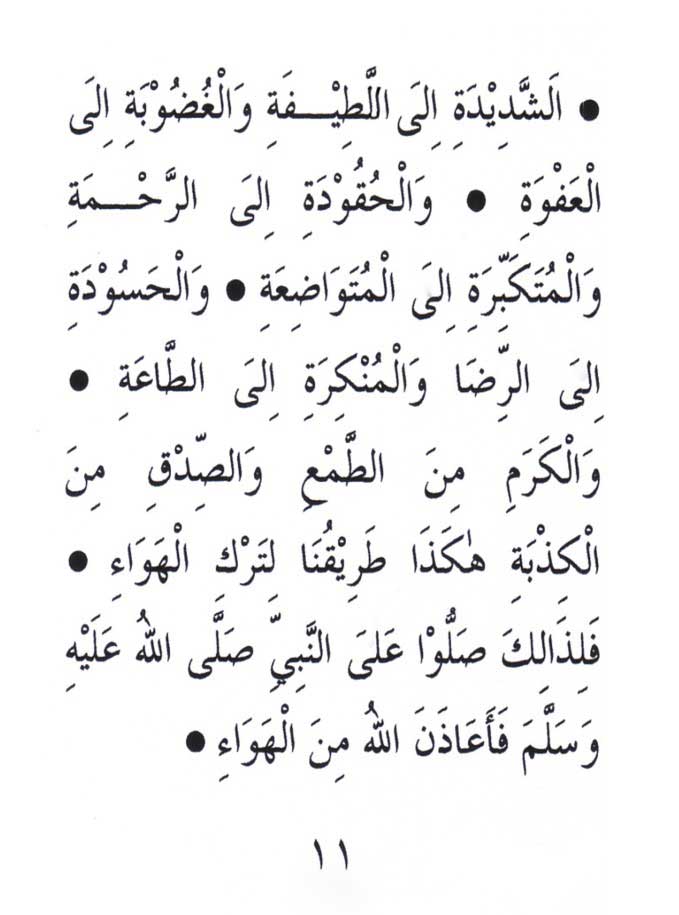 ● اَلشَّدِيْدَةِ اِلَى اللَّطِيْفَةِ وَالْغُضُوْبَةِ اِلَى
الْعَفْوَةِ ● وَالْحُقُوْدَةِ اِلَى الرَّحْمَةِ
وَالْمُتَكَبِّرَةِ اِلَى الْمُتَوَاضِعَةِ ● وَالْحَسُوْدَةِ
اِلَى الرِّضَا وَالْمُنْكِرَةِ اِلَى الطَّاعَةِ ●
وَالْكَرَمِ مِنَ الطَّمْعِ وَالصِّدْقِ مِنَ
الْكِذْبَةِ هٰكَذَا طَرِيْقُنَا لِتَرْكِ الْهَوَاءِ ●
فَلِذَالِكَ صَلُّوْا عَلَى النَّبِيِّ صَلَّى اللهُ عَلَيْهِ
وَسَلَّمَ فَأَعَاذَنَ اللهُ مِنَ الْهَوَاءِ ●
١١